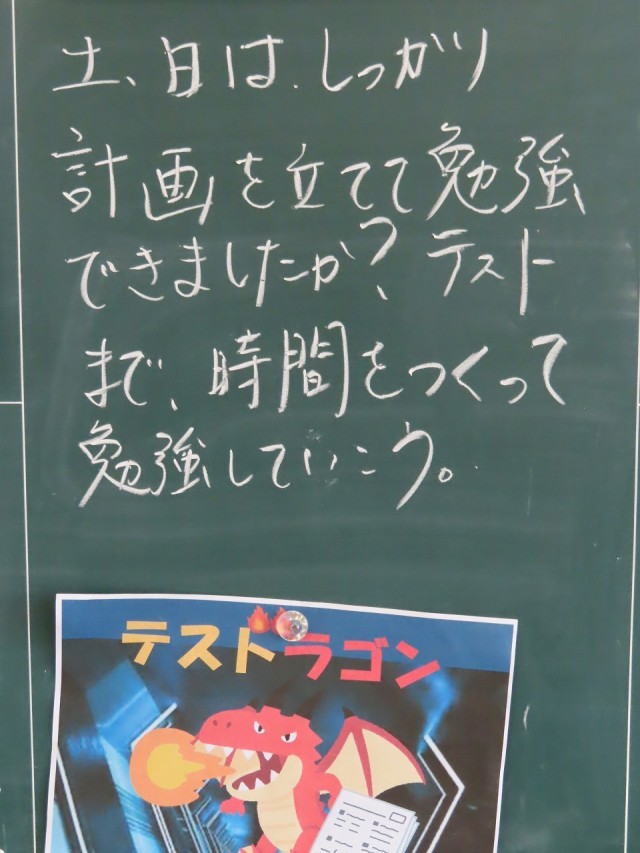 土、日は、しっかり
計画を立てて勉強
できましたか?、テスト
まで、時間をつくって
勉強していこう。
テストラゴン